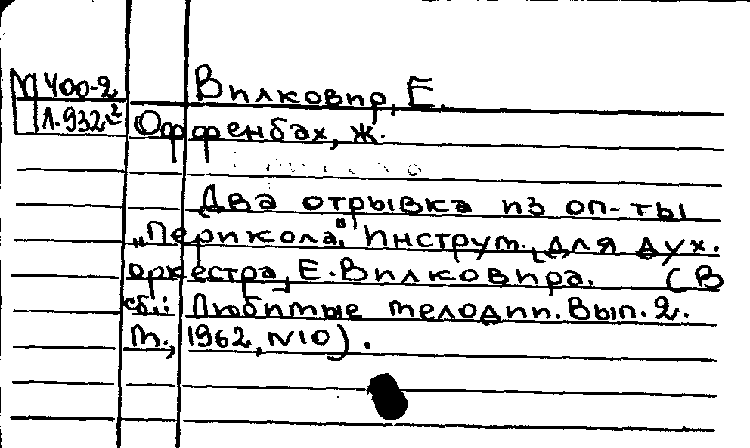 М 400-2 Вилковир, Е.
Л.932² Оффенбах, Ж.
Два отрывка из оп-ты
„Перикола". Инструм. для дух.
оркестра, Е. Вилковира. (В
сб.: Любимые мелодии. Вып. 2.
М., 1962, N10).